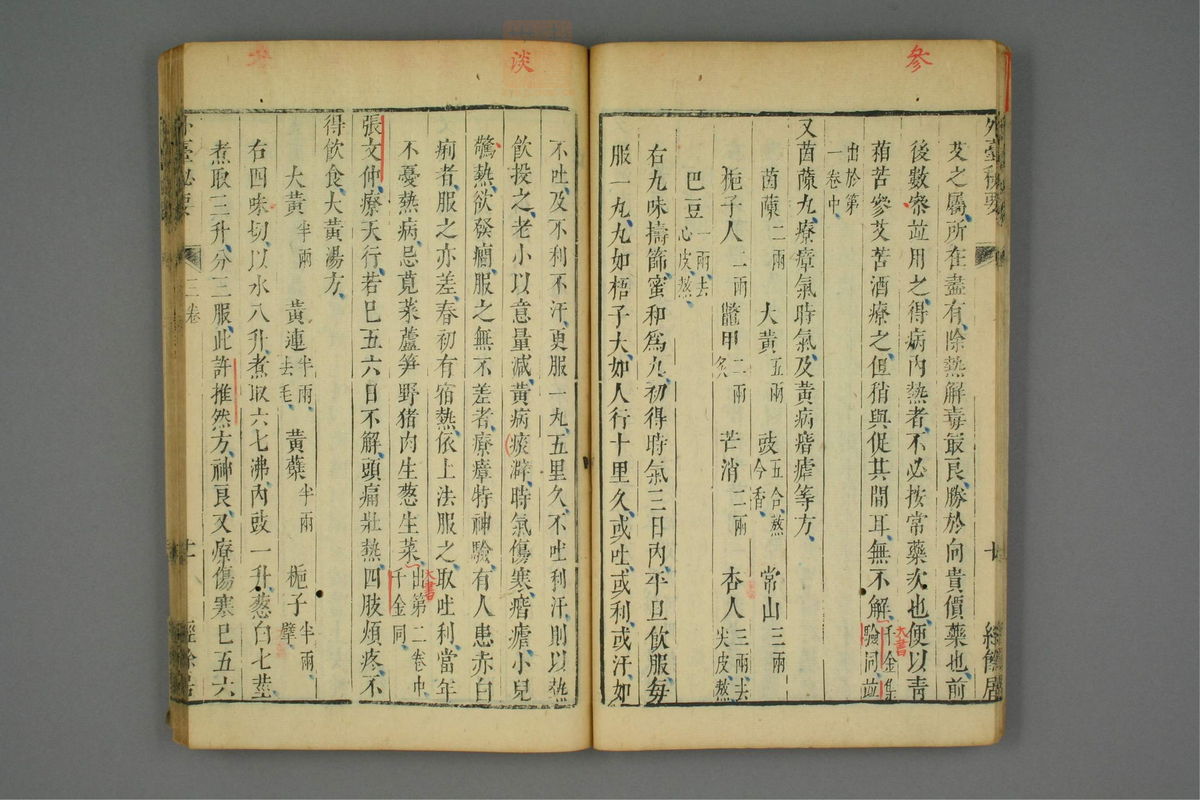 参
艾之屬所在盡有除熱解毒最良勝於向貴價藥也前
後數衆並用之得病內熱者不必按常藥次也便以靑
葙苦參艾苦酒療之但稍與促其間耳無不解千金集
驗同並
大書
出於第
一卷中
又茵蔯丸療瘴氣時氣及黃病㾬瘧等方
茵蔯二兩 大黃五兩 豉五合熬令香 常山三兩
梔子人二兩 鼈甲二兩炙 芒消二兩 杏人三兩去尖皮熬
巴豆一兩去心皮熬
右九味擣篩蜜和爲丸初得時氣三日內平旦飲服每
服一丸丸如梧子大如人行十里久或吐或利或汗如
谈
不吐及不利不汗更服一丸五里久不吐利汗則以熱
飲投之老小以意量減黃病痰澼時氣傷寒㾬瘧小兒
驚熱欲發癎服之無不差者療瘴特神驗有人患赤白
痢者服之亦差春初有宿熱依上法服之取吐利當年
不憂熱病忌莧菜蘆笋野猪肉生葱生菜出第二卷中
千金同
大書
張文仲療天行若巳五六日不解頭痛壯熱四肢煩疼不
得飲食大黃湯方
大黃半兩 黃連半兩去毛 黃蘗半兩 梔子半兩擘
右四味切以水八升煮取六七沸內豉一升葱白七莖
煮取三升分三服此許推然方神良又療傷寒巳五六
三卷